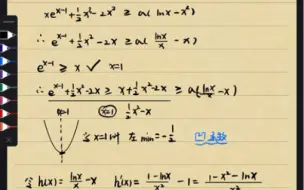 xe^{x-1}+\frac{1}{2}x³-2x² ≥ a(lnx-x²)
∴ e^{x-1}+\frac{1}{2}x²-2x ≥ a(\frac{lnx}{x}-x)
e^{x-1} ≥ x ✓ x=1
∴ e^{x-1}+\frac{1}{2}x²-2x ≥ x+\frac{1}{2}x²-2x ≥ a(\frac{lnx}{x}-x)
x=1 \frac{1}{2}x²-x
当x=1时 左min=-\frac{1}{2}
令h(x)=\frac{lnx}{x}-x h'(x)=\frac{1-lnx}{x²}-1=\frac{1-x²-lnx}{x²}